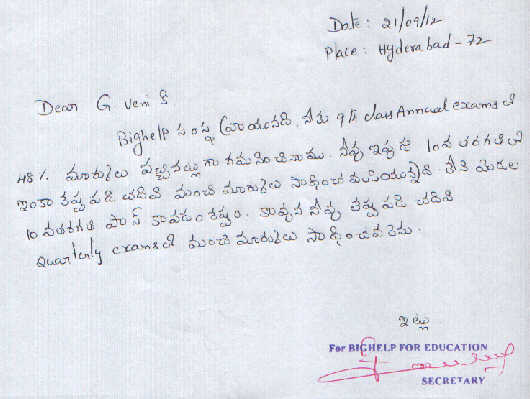 Date: 21/09/12
Place: Hyderabad-72
Dear G Veni కి
Bighelp సంస్థ వ్రాయునది. నీకు 9th class Annual exams లో
48% మార్కులు వచ్చినట్లుగా గమనించినాము. నీవు ఇప్పుడు 10వ తరగతిలో
ఇంకా కష్టపడి చదివి మంచి మార్కులు సాధించ వలసియున్నది. లేని యెడల
10వ తరగతి పాస్ కావడం కష్టం. కావున నీవు కష్టపడి చదివి
Quarterly exams లో మంచి మార్కులు సాధించవలెను.
ఇట్లు
For BIGHELP FOR EDUCATION
SECRETARY